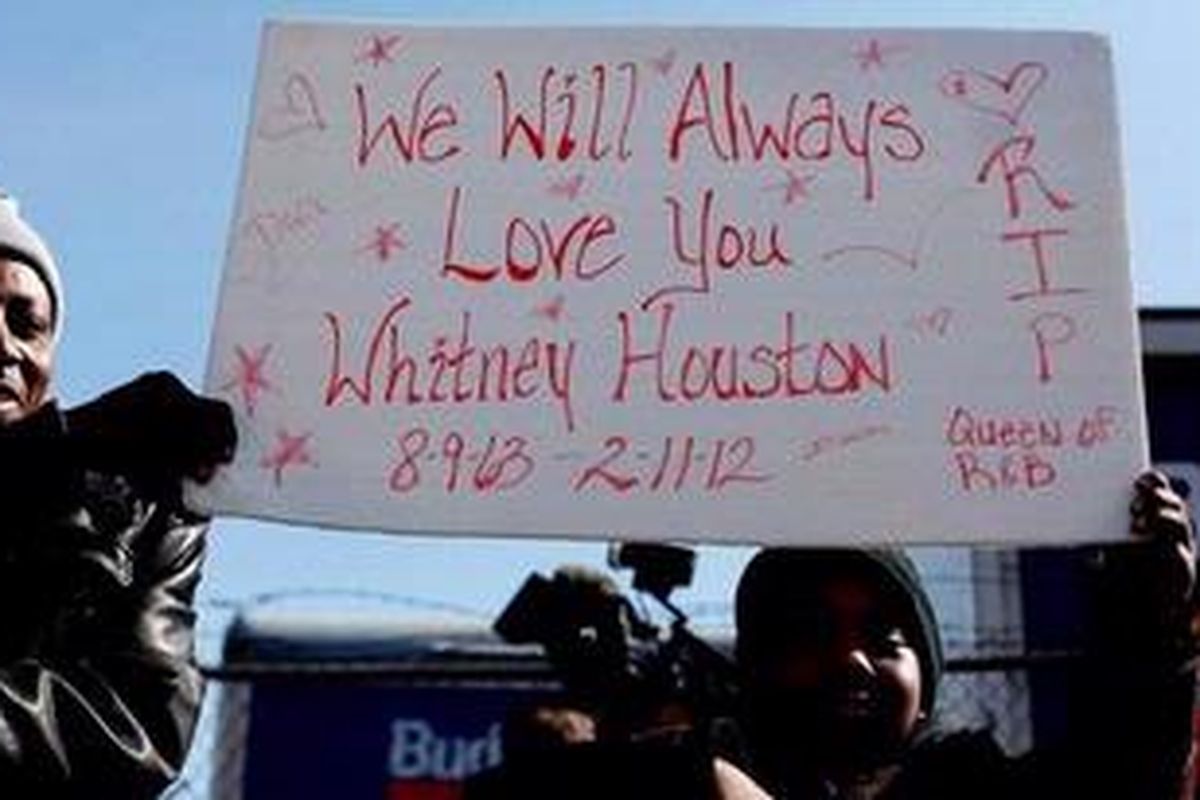 We Will Always
Love You
Whitney Houston
8-9-63 - 2-11-12
R
I
P
Queen of
R&B
Bud